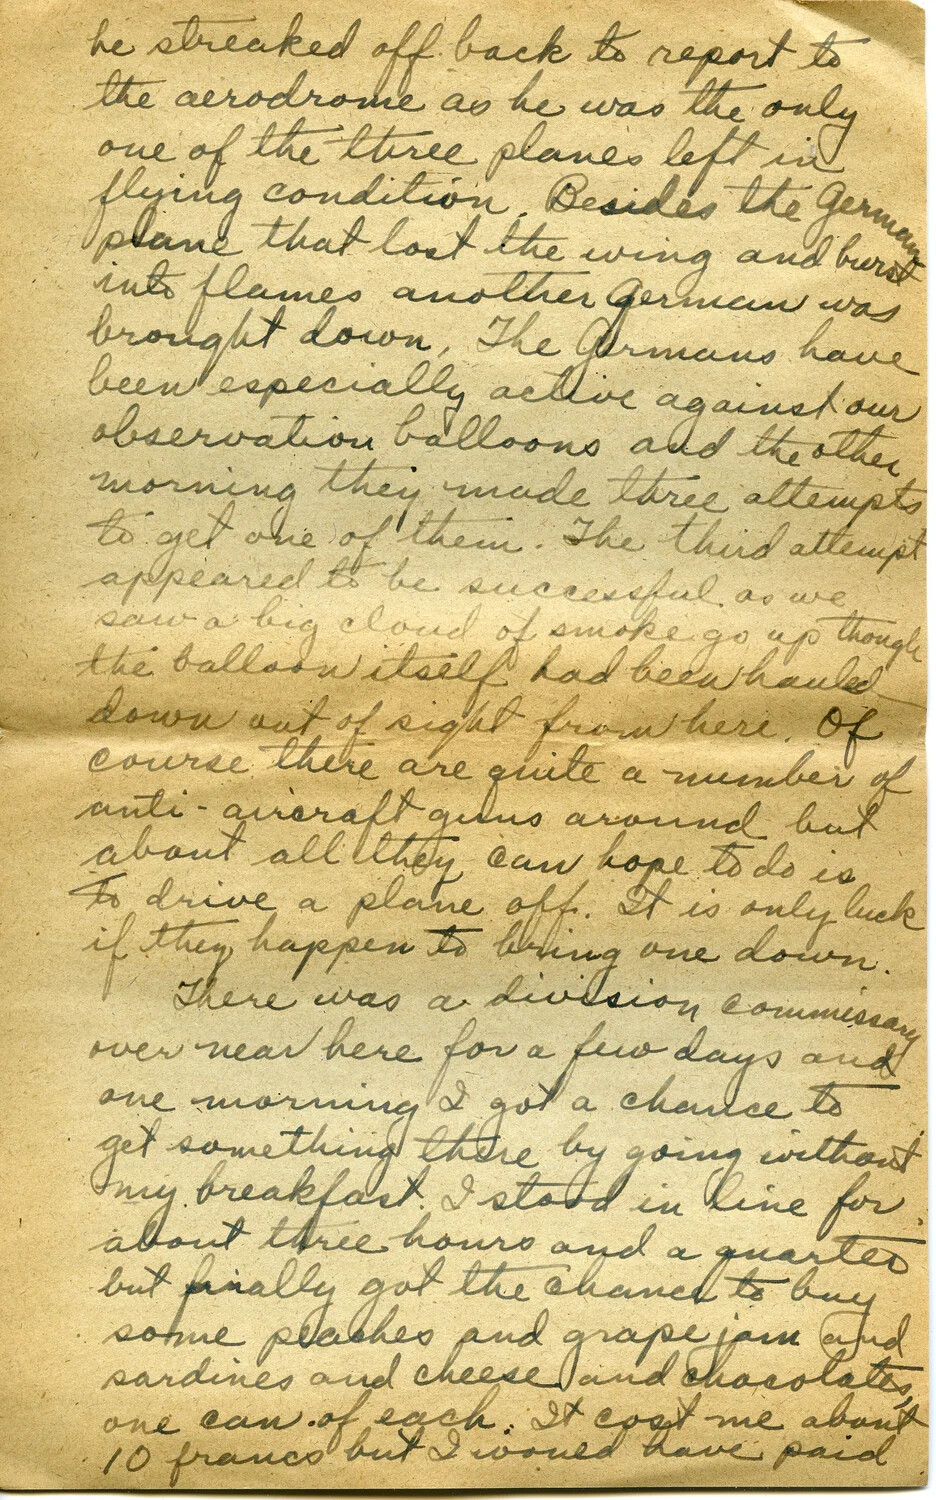 he streaked off back to report to
the aerodrome as he was the only
one of the three planes left in
flying condition. Besides the German
plane that lost the wing and burst
into flames another German was
brought down, The Germans have
been especially active against our
observation balloons and the other
morning they made three attempts
to get one of them. The third attempt
appeared to be successful as we
saw a big cloud of smoke go up though
the balloon itself had been hauled
down out of sight from here. Of
course there are quite a number of
anti-aircraft guns around but
about all they can hope to do is
to drive a plane off. It is only luck
if they happen to bring one down.
There was a division commissary
over near here for a few days and
one morning I got a chance to
get something there by going without
my breakfast. I stood in line for
about three hours and a quarter
but finally got the chance to buy
some peaches and grape jam and
sardines and cheese and chocolates,
one can of each. It cost me about
10 francs but I would have paid